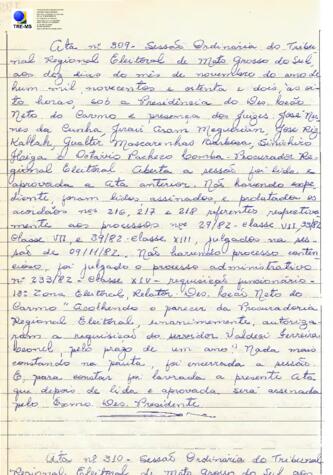 TRE-MS
Ata nº 309 - Sessão Ordinária do Tribu-
nal Regional Eleitoral de Mato Grosso do Sul,
aos dez dias do mês de novembro do ano de
hum mil, novecentos e oitenta e dois, às oi-
to horas, sob a Presidência do Des. Leão
Neto do Carmo e presença dos Juízes: José Nu-
nes da Cunha, Aram Meguerian, José Rizkallah,
Gualter Mascarenhas Barbosa, Shinichiro
Haiga e Octávio Pacheco Lomba - Procurador Re-
gional Eleitoral. Aberta a sessão foi lida e
aprovada a Ata anterior. Não havendo expe-
diente, foram lidos, assinados, e prolatados os
acórdãos nºs 216, 217 e 218 referentes respectiva-
mente aos processos nºs 29/82 - classe VII,
classe VII, e 39/82 - classe XIII, julgados na ses-
são de 09/11/82. Não havendo processo conten-
cioso, foi julgado o processo administrativo
nº 233/82 - Classe XIV - requisição funcionário -
18ª Zona Eleitoral, Relator "Des. Leão Neto do
Carmo "Acolhendo o parecer da Procuradoria
Regional Eleitoral, unanimemente, autoriza-
ram a requisição do servidor Valdeci Ferreira
pelo prazo de um ano" Nada mais
constando na pauta, foi encerrada a sessão.
E para constar foi lavrada a presente Ata
que depois de lida e aprovada será assinada
pelo Exmo. Des. Presidente.
Ata nº 310 - Sessão Ordinária do Tribunal
Regional Eleitoral de Mato Grosso do Sul, aos